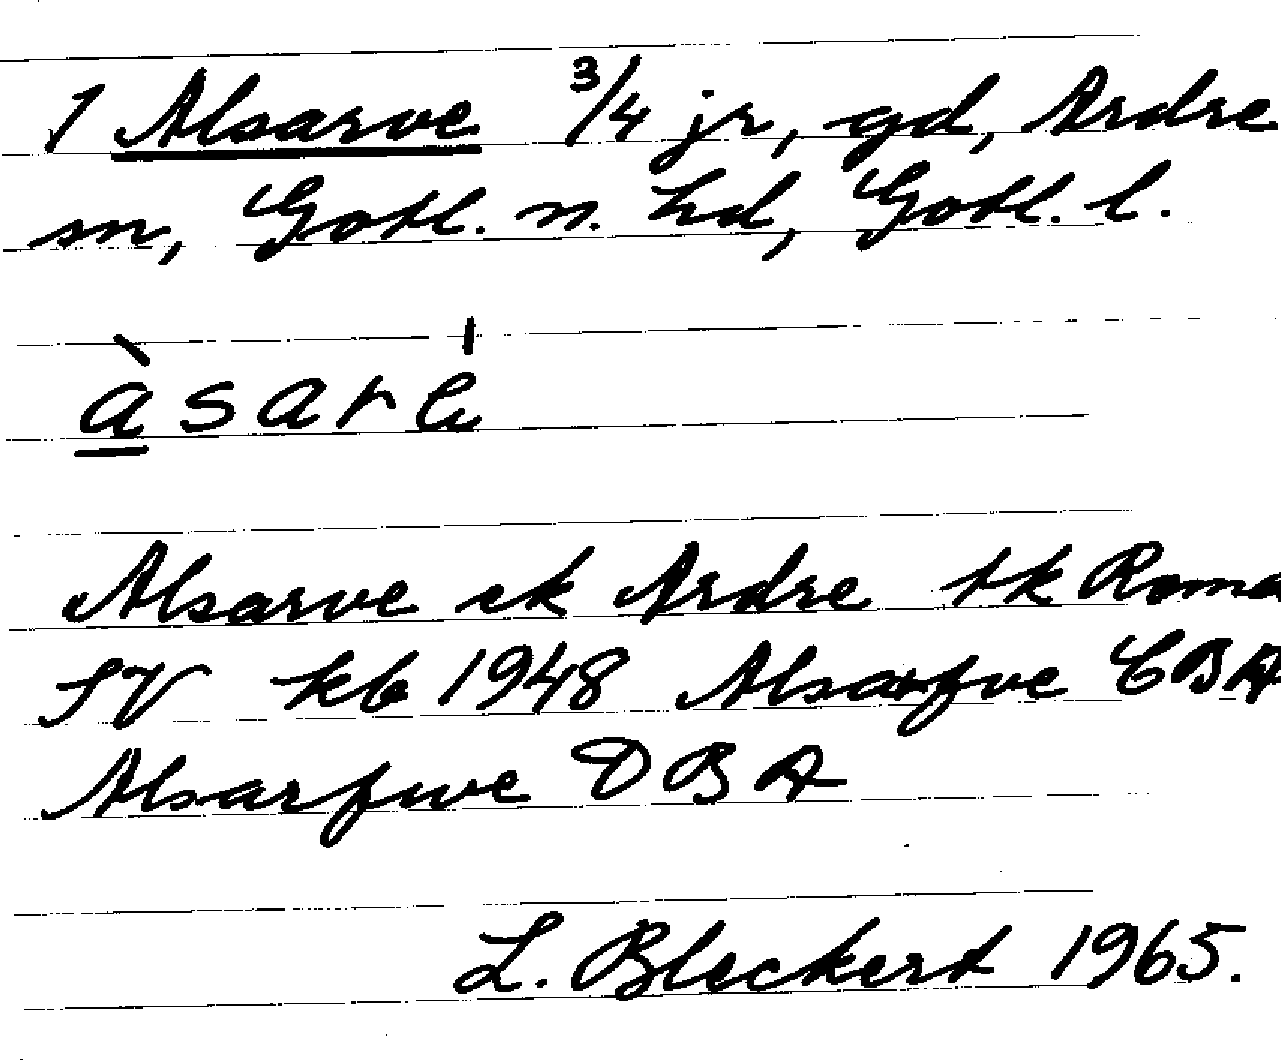 1 Alsarve 3/4 jr, gd, Ardre
sn, Gotl. n. hd, Gotl. l.
Alsarve ek Ardre tk Roma
SV kb 1948 Alsarfve CBA
Alsarfwe DBA
L. Bleckert 1965.